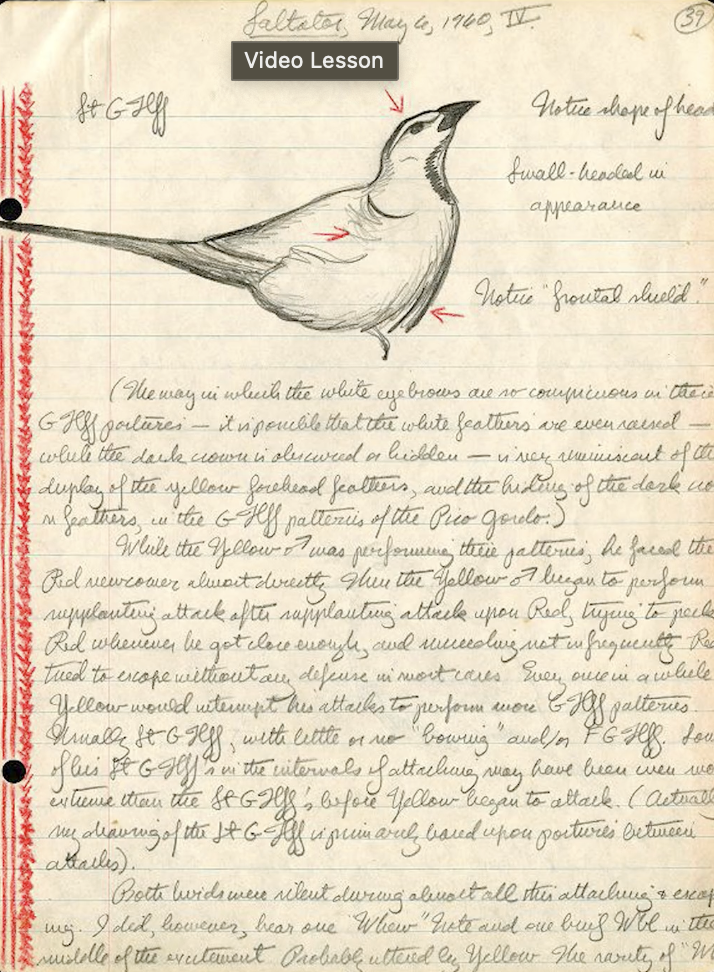 Saltator, May 6, 1960, IV.
39
Video Lesson
St G Hff
Notice shape of head
Small-headed in
appearance
Notice "frontal shield."
(The way in which the white eyebrows are so conspicuous in these
G Hff postures — it is possible that the white feathers are even raised —
while the dark crown is obscured or hidden — is very reminiscent of the
display of the yellow forehead feathers, and the hiding of the dark cro
n feathers, in the G Hff patterns of the Pico Gordo.)
While the Yellow ♂ was performing these patterns, he faced the
Red newcomer almost directly. Then the Yellow ♂ began to perform
supplanting attack after supplanting attack upon Red, trying to peck
Red whenever he got close enough, and succeeding not infrequently. Red
tried to escape without any defense in most cases. Every once in a while
Yellow would interrupt his attacks to perform more G Hff patterns.
Usually St G Hff, with little or no "bowing" and/or F G Hff. Som
of his St G Hff's in the intervals of attacking may have been even mo
extreme than the St G Hff's before Yellow began to attack. (Actually
my drawing of the St G Hff is primarily based upon postures between
attacks).
Both birds were silent during almost all this attacking & escap
ing. I did, however, hear one "Whew" Note and one brief Wbl in the
middle of the excitement. Probably uttered by Yellow. The rarity of "W